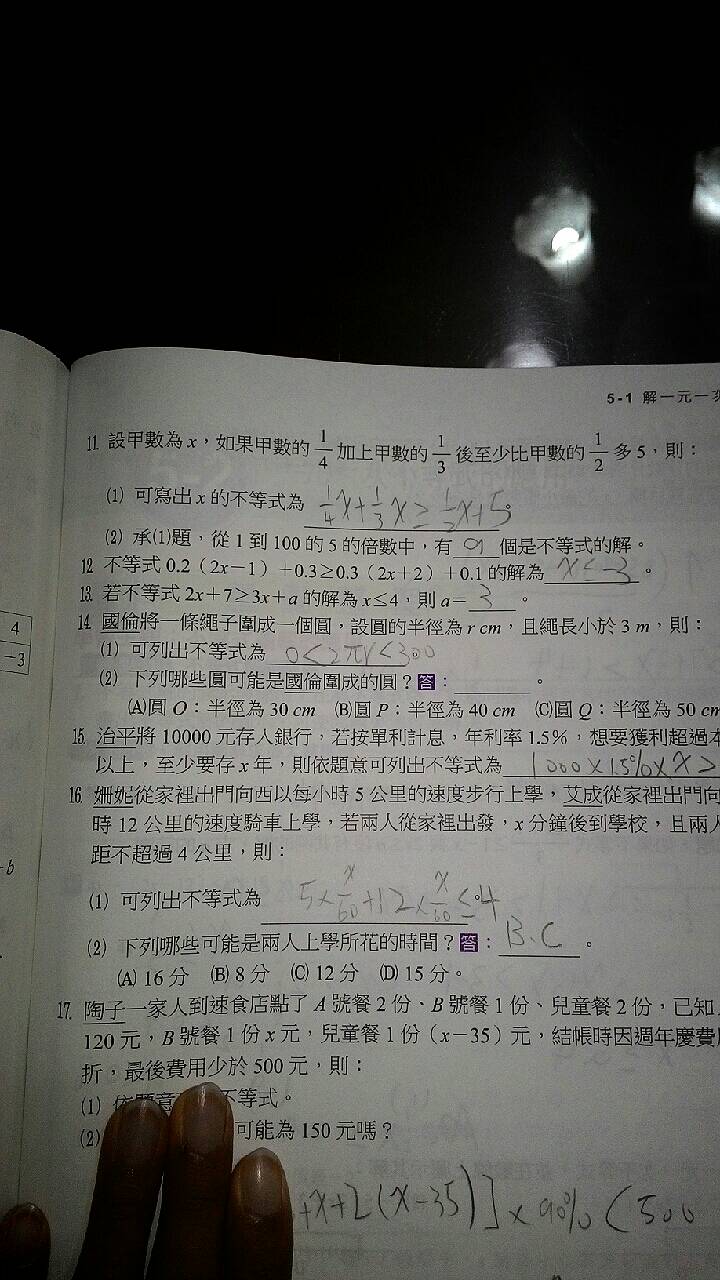 5-1 解一元一
11. 設甲數為 x，如果甲數的 1/4 加上甲數的 1/3 後至少比甲數的 1/2 多 5，則：
(1) 可寫出 x 的不等式為 1/4x+1/3x≥1/2x+5。
(2) 承(1)題，從 1 到 100 的 5 的倍數中，有 9 個是不等式的解。
12. 不等式 0.2（2x－1）－0.3≥0.3（2x＋2）＋0.1 的解為 x≤-3。
13. 若不等式 2x＋7≥3x＋a 的解為 x≤4，則 a＝3。
14. 國倫將一條繩子圍成一個圓，設圓的半徑為 r cm，且繩長小於 3 m，則：
(1) 可列出不等式為 0<2πr<300
(2) 下列哪些圓可能是國倫圍成的圓？答：。
(A)圓 O：半徑為 30 cm (B)圓 P：半徑為 40 cm (C)圓 Q：半徑為 50 cm
15. 治平將 10000 元存入銀行，若按單利計息，年利率 1.5%，想要獲利超過
以上，至少要存 x 年，則依題意可列出不等式為 1000×1.5%×x≥
16. 姍妮從家裡出門向西以每小時 5 公里的速度步行上學，艾成從家裡出門向
時 12 公里的速度騎車上學，若兩人從家裡出發，x 分鐘後到學校，且兩人
距不超過 4 公里，則：
(1) 可列出不等式為 5×x/60+12×x/60≤4。
(2) 下列哪些可能是兩人上學所花的時間？答：B、C。
(A) 16 分 (B) 8 分 (C) 12 分 (D) 15 分。
17. 陶子一家人到速食店點了 A 號餐 2 份、B 號餐 1 份、兒童餐 2 份，已知
120 元，B 號餐 1 份 x 元，兒童餐 1 份（x－35）元，結帳時因週年慶費
折，最後費用少於 500 元，則：
(1) 依題意 不等式。
(2) 可能為 150 元嗎？
+x+2(x-35)]×90%<500
4
－3
b